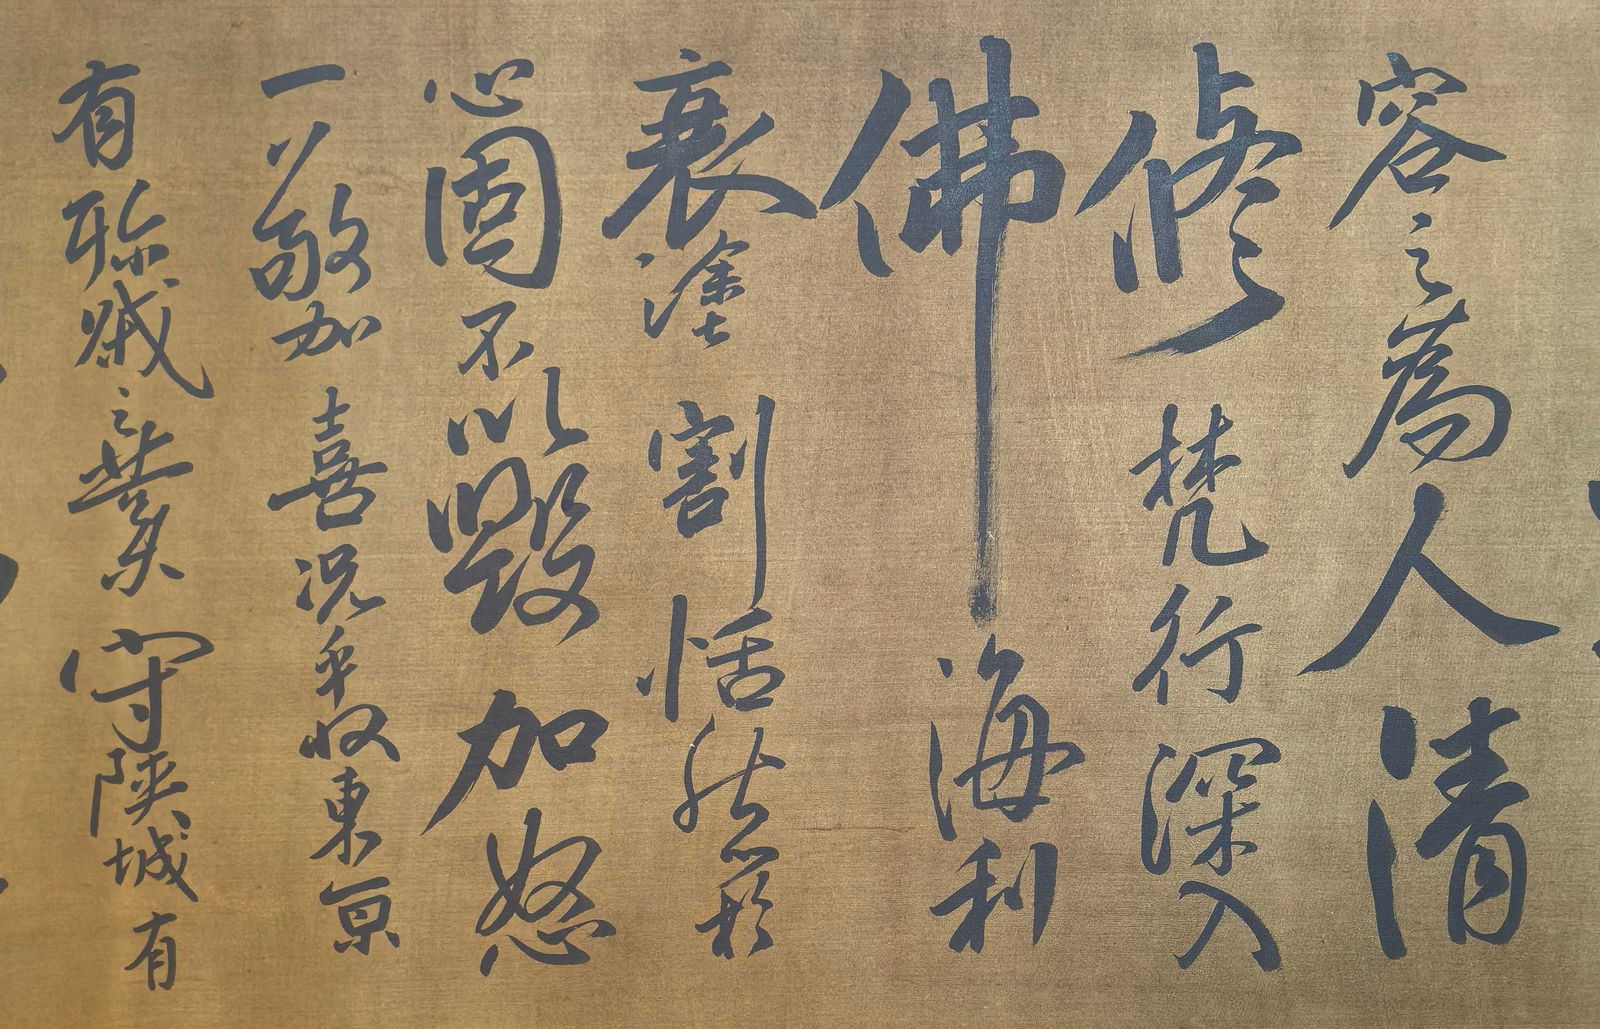 容之為人清
修梵行深入
佛海利
衰塗割恬然於
心固不以毀加怒
一以敬加喜況乎收東京
有聯戚之業守陝城有